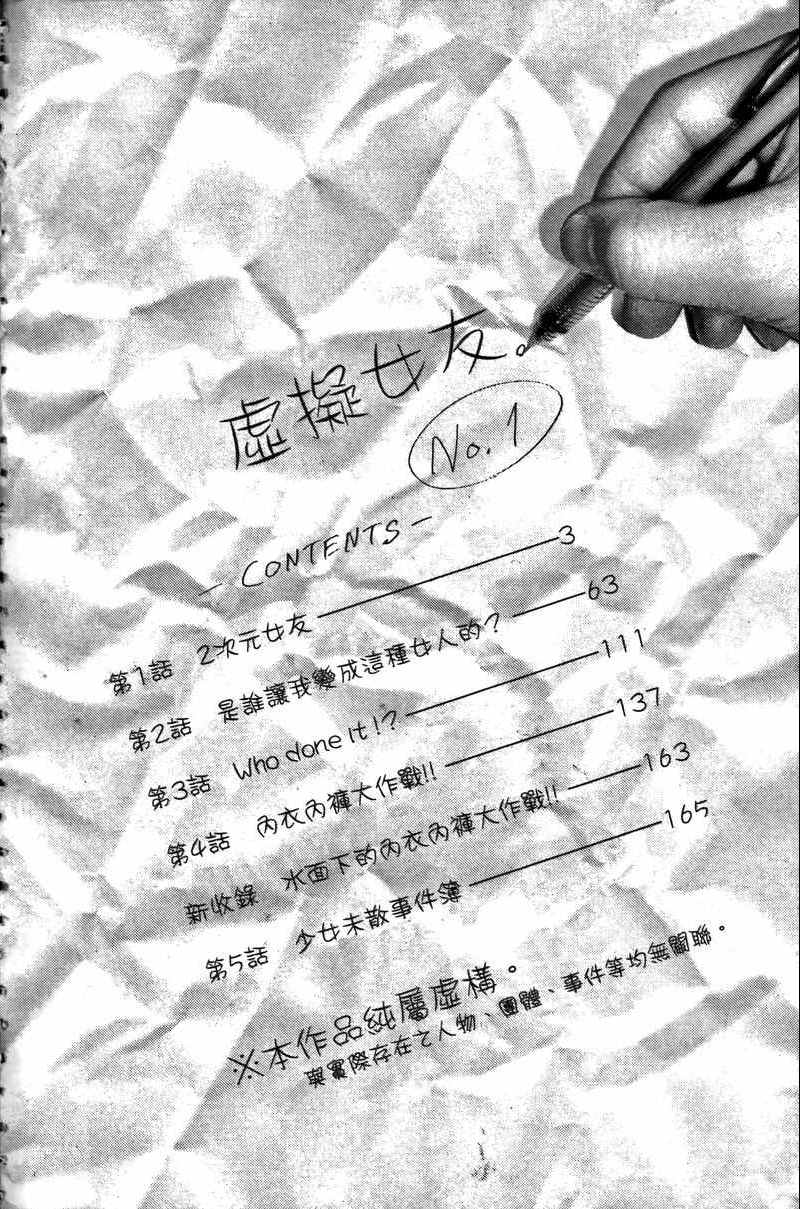 虛擬女友。
No. 1
— CONTENTS —
第1話 2次元女友 3
第2話 是誰讓我變成這種女人的? 63
第3話 Who done it!? 111
第4話 內衣內褲大作戰!! 137
新收錄 水面下的內衣內褲大作戰!! 163
第5話 少女未散事件簿 165
※本作品純屬虛構。
與實際存在之人物、團體、事件等均無關聯。